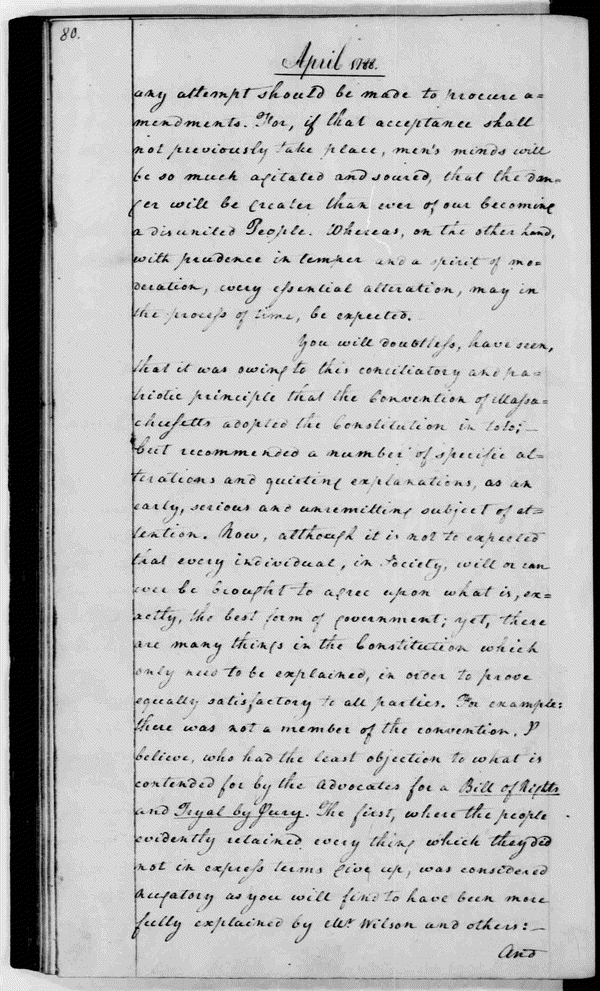 80.
April 1788.
any attempt should be made to procure a=
mendments. For, if that acceptance shall
not previously take place, men's minds will
be so much agitated and soured, that the dan=
ger will be greater than ever of our becoming
a disunited People. Whereas, on the other hand,
with prudence in temper and a spirit of mo=
deration, every essential alteration, may in
the process of time, be expected.
You will doubtless, have seen,
that it was owing to this conciliatory and pa=
triotic principle that the Convention of Massa=
chusetts adopted the Constitution in toto;—
but recommended a number of specific al=
terations and quieting explanations, as an
early, serious and unremitting subject of at=
tention. Now, although it is not to expected
that every individual, in Society, will or can
ever be brought to agree upon what is, ex=
actly, the best form of government; yet, there
are many things in the Constitution which
only need to be explained, in order to prove
equally satisfactory to all parties. For example:
there was not a member of the convention, I
believe, who had the least objection to what is
contended for by the advocates for a Bill of Rights
and Tryal by Jury. The first, where the people
evidently retained every thing which they did
not in express terms give up, was considered
nugatory as you will find to have been more
fully explained by Mr Wilson and others:—
And